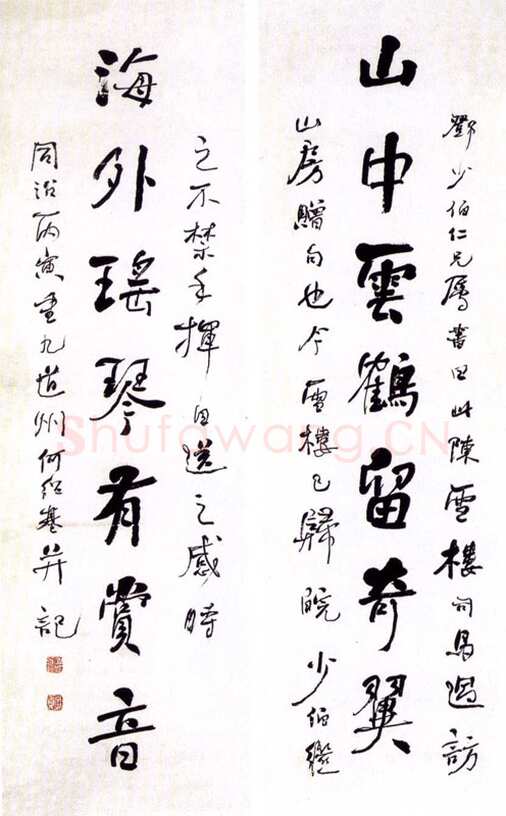 鄧少伯仁兄屬書曰此陳雪樓司馬過訪
山中雲鶴留奇翼
山房贈句也今雪樓已歸皖少伯繼
之不禁手揮目送之感時
海外瑤琴有賞音
同治丙寅重九道州何紹基并記
Shufawang.CN